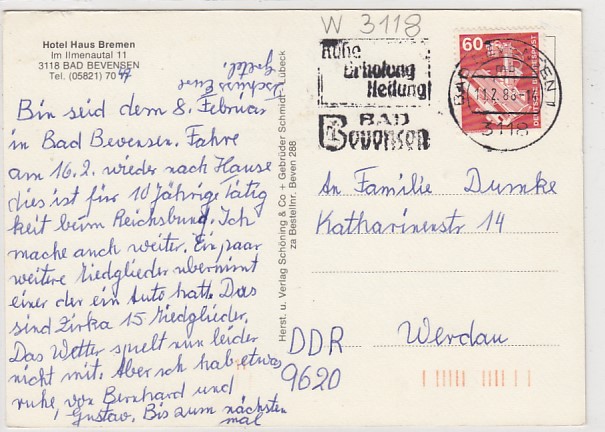 W 3118
Hotel Haus Bremen
Im Ilmenautal 11
3118 BAD BEVENSEN
Tel. (05821) 70 4
Bin seid dem 8. Februar
in Bad Bevensen. Fahre
am 16.2. wieder nach Hause
dies ist für 10 Jährige Tätig
keit beim Reichsbund. Ich
mache auch weiter. Ein paar
weitere Miedglieder übernimt
einer der ein Auto hatt. Das
sind Zirka 15 Miedglieder.
Das Wetter spielt nun leider
nicht mit. Aber ich hab etwas
ruhe, von Bernhard und
Gustav. Bis zum nächsten
mal
Tschüss Eure
Herst. u. Verlag Schöning & Co + Gebrüder Schmidt - Lübeck
za Bestellnr. Beven 288
Ruhe
Erholung
Heilung
BAD
Bevensen
BAD BEVENSEN 1
11.2.88
3118
60
DEUTSCHE BUNDESPOST
An Familie Dumke
Katharinenstr 14
DDR Werdau
9620